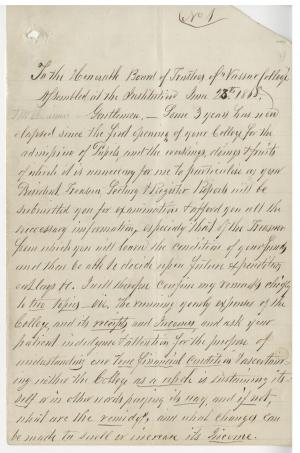 No 1
To the Honorable Board of Trustees of "Vassar College"
Assembled at the Institution June 23rd 1868.
Gentlemen, — Some 3 years has now
elapsed since the first opening of your College for the
admission of Pupils, and the workings, doings & fruits
of which it is unnecessary for me to particularize as your
President, Treasurer, Faculty & Registrar Reports will be
submitted you for examination & afford you all the
necessary information, especially that of the Treasurer
from which you will learn the condition of your funds
and then be able to decide upon future expenditures
outlays &c. I will therefore confine my remarks chiefly
to two Topics viz. The running yearly expenses of the
College, and its receipts and Incomes and ask your
patient indulgence & attention for the purpose of
understanding our true Financial Condition & ascertain-
ing wether the College as a whole is sustaining its
self or in other words paying its way, and if not,
what are the remidys, and what changes can
be made to swell or increase its Income.